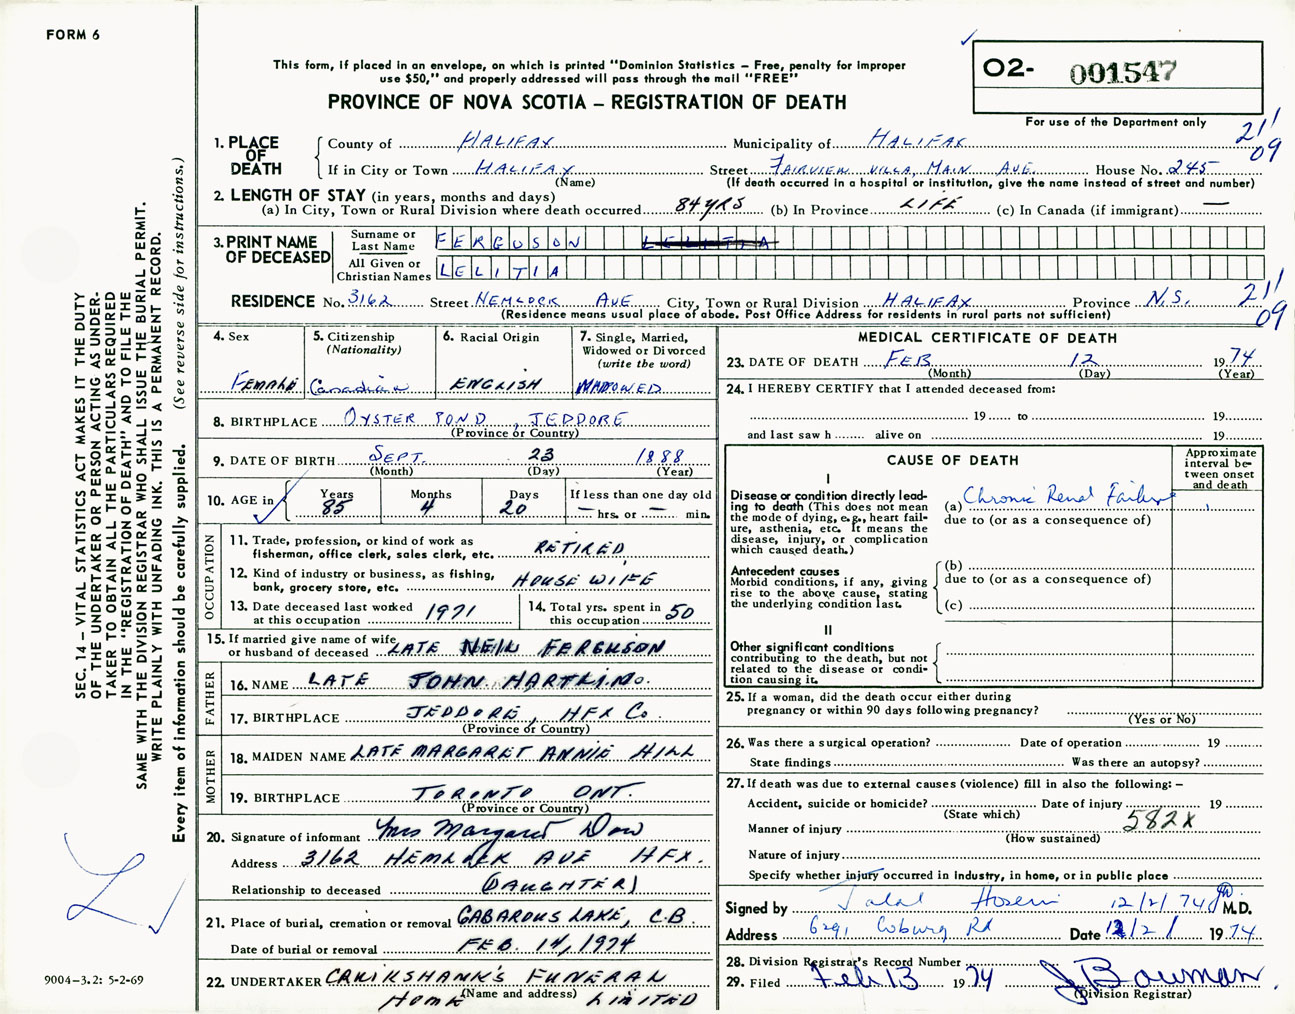 FORM 6
This form, if placed in an envelope, on which is printed "Dominion Statistics – Free, penalty for improper
use $50," and properly addressed will pass through the mail "FREE"
PROVINCE OF NOVA SCOTIA – REGISTRATION OF DEATH
02- 001547
For use of the Department only
211
09
SEC. 14 – VITAL STATISTICS ACT MAKES IT THE DUTY
OF THE UNDERTAKER OR PERSON ACTING AS UNDER-
TAKER TO OBTAIN ALL THE PARTICULARS REQUIRED
IN THE "REGISTRATION OF DEATH" AND TO FILE THE
SAME WITH THE DIVISION REGISTRAR WHO SHALL ISSUE THE BURIAL PERMIT.
WRITE PLAINLY WITH UNFADING INK. THIS IS A PERMANENT RECORD.
Every item of information should be carefully supplied. (See reverse side for instructions.)
1. PLACE OF DEATH
County of HALIFAX Municipality of HALIFAX
If in City or Town HALIFAX Street FAIRVIEW VILLA, MAIN AVE House No. 245
(Name) (If death occurred in a hospital or institution, give the name instead of street and number)
2. LENGTH OF STAY (in years, months and days)
(a) In City, Town or Rural Division where death occurred 84 YRS (b) In Province LIFE (c) In Canada (if immigrant) —
3. PRINT NAME OF DECEASED
Surname or Last Name FERGUSON LELITIA
All Given or Christian Names LELITIA
RESIDENCE No. 3162 Street HEMLOCK AVE City, Town or Rural Division HALIFAX Province N.S. 211
(Residence means usual place of abode. Post Office Address for residents in rural parts not sufficient) 09
4. Sex FEMALE
5. Citizenship (Nationality) Canadian
6. Racial Origin ENGLISH
7. Single, Married, Widowed or Divorced (write the word) WIDOWED
8. BIRTHPLACE OYSTER POND, JEDDORE
(Province or Country)
9. DATE OF BIRTH SEPT. 23 1888
(Month) (Day) (Year)
10. AGE in Years 85 Months 4 Days 20 If less than one day old — hrs. or — min.
OCCUPATION
11. Trade, profession, or kind of work as fisherman, office clerk, sales clerk, etc. RETIRED
12. Kind of industry or business, as fishing, bank, grocery store, etc. HOUSE WIFE
13. Date deceased last worked at this occupation 1971
14. Total yrs. spent in this occupation 50
15. If married give name of wife or husband of deceased LATE NEIL FERGUSON
FATHER
16. NAME LATE JOHN HARTLING.
17. BIRTHPLACE JEDDORE, HFX CO.
(Province or Country)
MOTHER
18. MAIDEN NAME LATE MARGARET ANNIE HILL
19. BIRTHPLACE TORONTO ONT.
(Province or Country)
20. Signature of informant Mrs Margaret Dow
Address 3162 HEMLOCK AVE HFX.
Relationship to deceased (DAUGHTER)
21. Place of burial, cremation or removal GABAROUS LAKE, C.B.
Date of burial or removal FEB. 14, 1974
22. UNDERTAKER CRUIKSHANK'S FUNERAL
HOME (Name and address) LIMITED
MEDICAL CERTIFICATE OF DEATH
23. DATE OF DEATH FEB 12 1974
(Month) (Day) (Year)
24. I HEREBY CERTIFY that I attended deceased from:
19 to 19
and last saw h alive on 19
CAUSE OF DEATH
Approximate interval between onset and death
I
Disease or condition directly leading to death (This does not mean the mode of dying, e.g., heart failure, asthenia, etc. It means the disease, injury, or complication which caused death.)
(a) Chronic Renal Failure
due to (or as a consequence of)
Antecedent causes
Morbid conditions, if any, giving rise to the above cause, stating the underlying condition last.
(b)
due to (or as a consequence of)
(c)
II
Other significant conditions
contributing to the death, but not related to the disease or condition causing it.
25. If a woman, did the death occur either during
pregnancy or within 90 days following pregnancy?
(Yes or No)
26. Was there a surgical operation? Date of operation 19
State findings Was there an autopsy?
27. If death was due to external causes (violence) fill in also the following: –
Accident, suicide or homicide? Date of injury 19
(State which)
Manner of injury 582X
(How sustained)
Nature of injury
Specify whether injury occurred in Industry, in home, or in public place
Signed by Jalal Hosein 12/2/74 M.D.
Address 6291 Coburg Rd Date 12/2/ 1974
28. Division Registrar's Record Number
29. Filed Feb 13 1974 J Bowman
(Division Registrar)
9004–3.2: 5-2-69